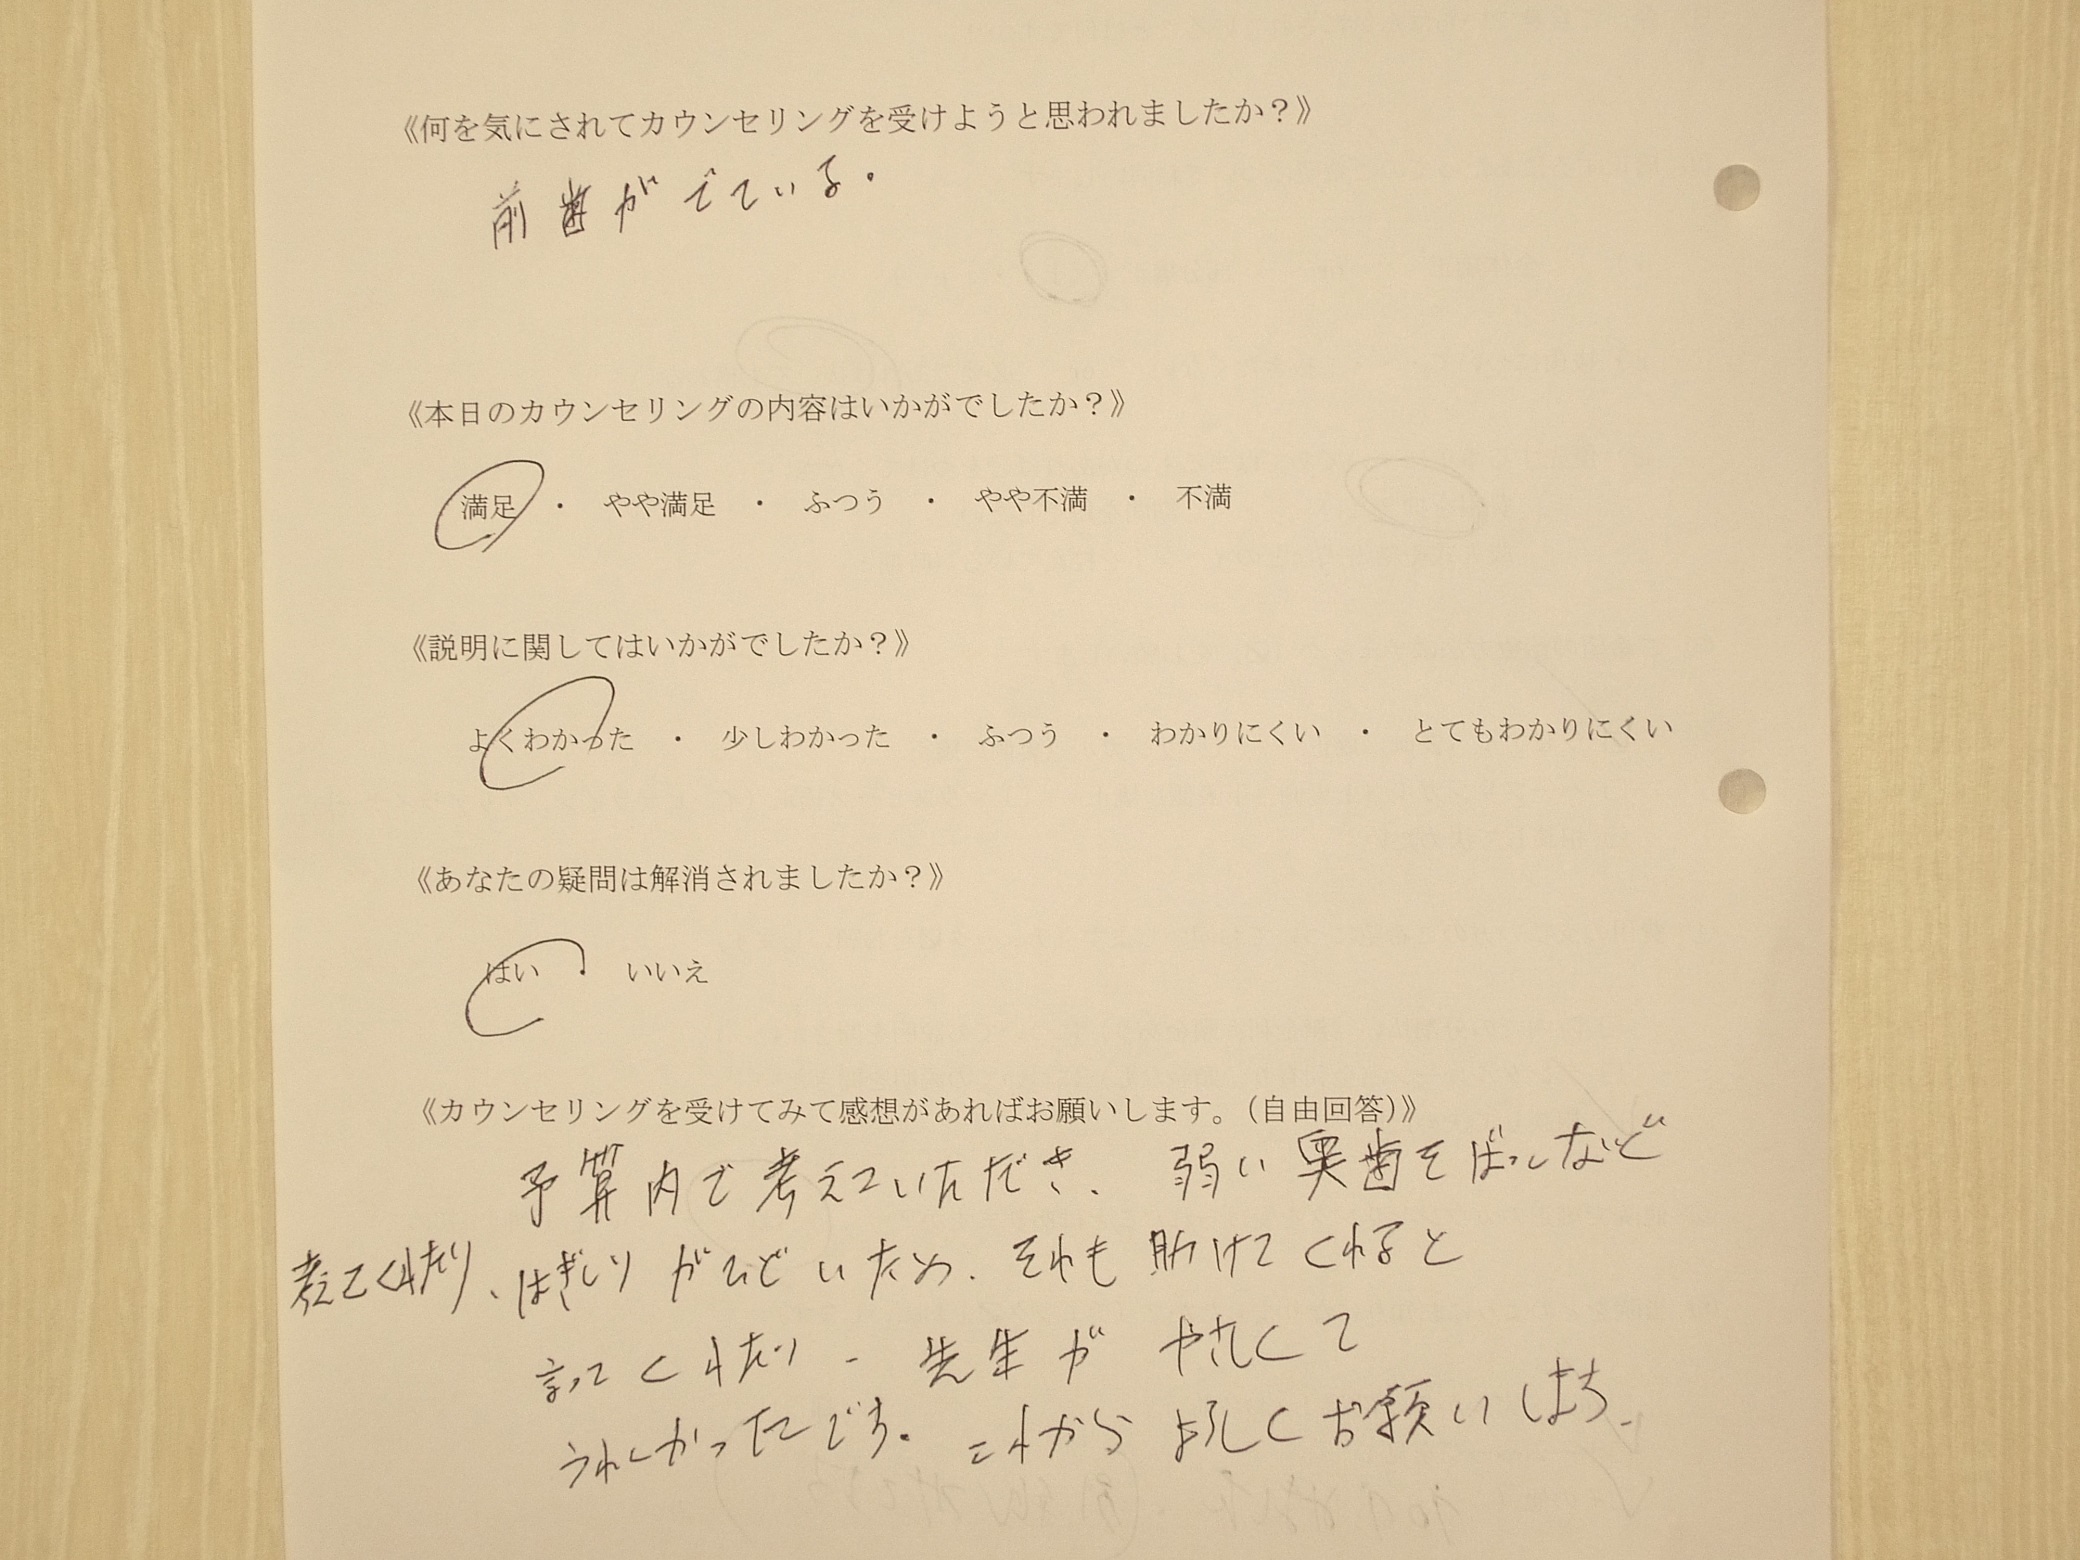 《何を気にされてカウンセリングを受けようと思われましたか？》
前歯がでている。
《本日のカウンセリングの内容はいかがでしたか？》
満足 ・ やや満足 ・ ふつう ・ やや不満 ・ 不満
《説明に関してはいかがでしたか？》
よくわかった ・ 少しわかった ・ ふつう ・ わかりにくい ・ とてもわかりにくい
《あなたの疑問は解消されましたか？》
はい ・ いいえ
《カウンセリングを受けてみて感想があればお願いします。（自由回答）》
予算内で考えていただき、弱い奥歯をばっしなど
考えてくれたり、はぎしりがひどいため、それも助けてくれると
言ってくれたり、先生がやさしくて
うれしかったです。これからよろしくお願いします。